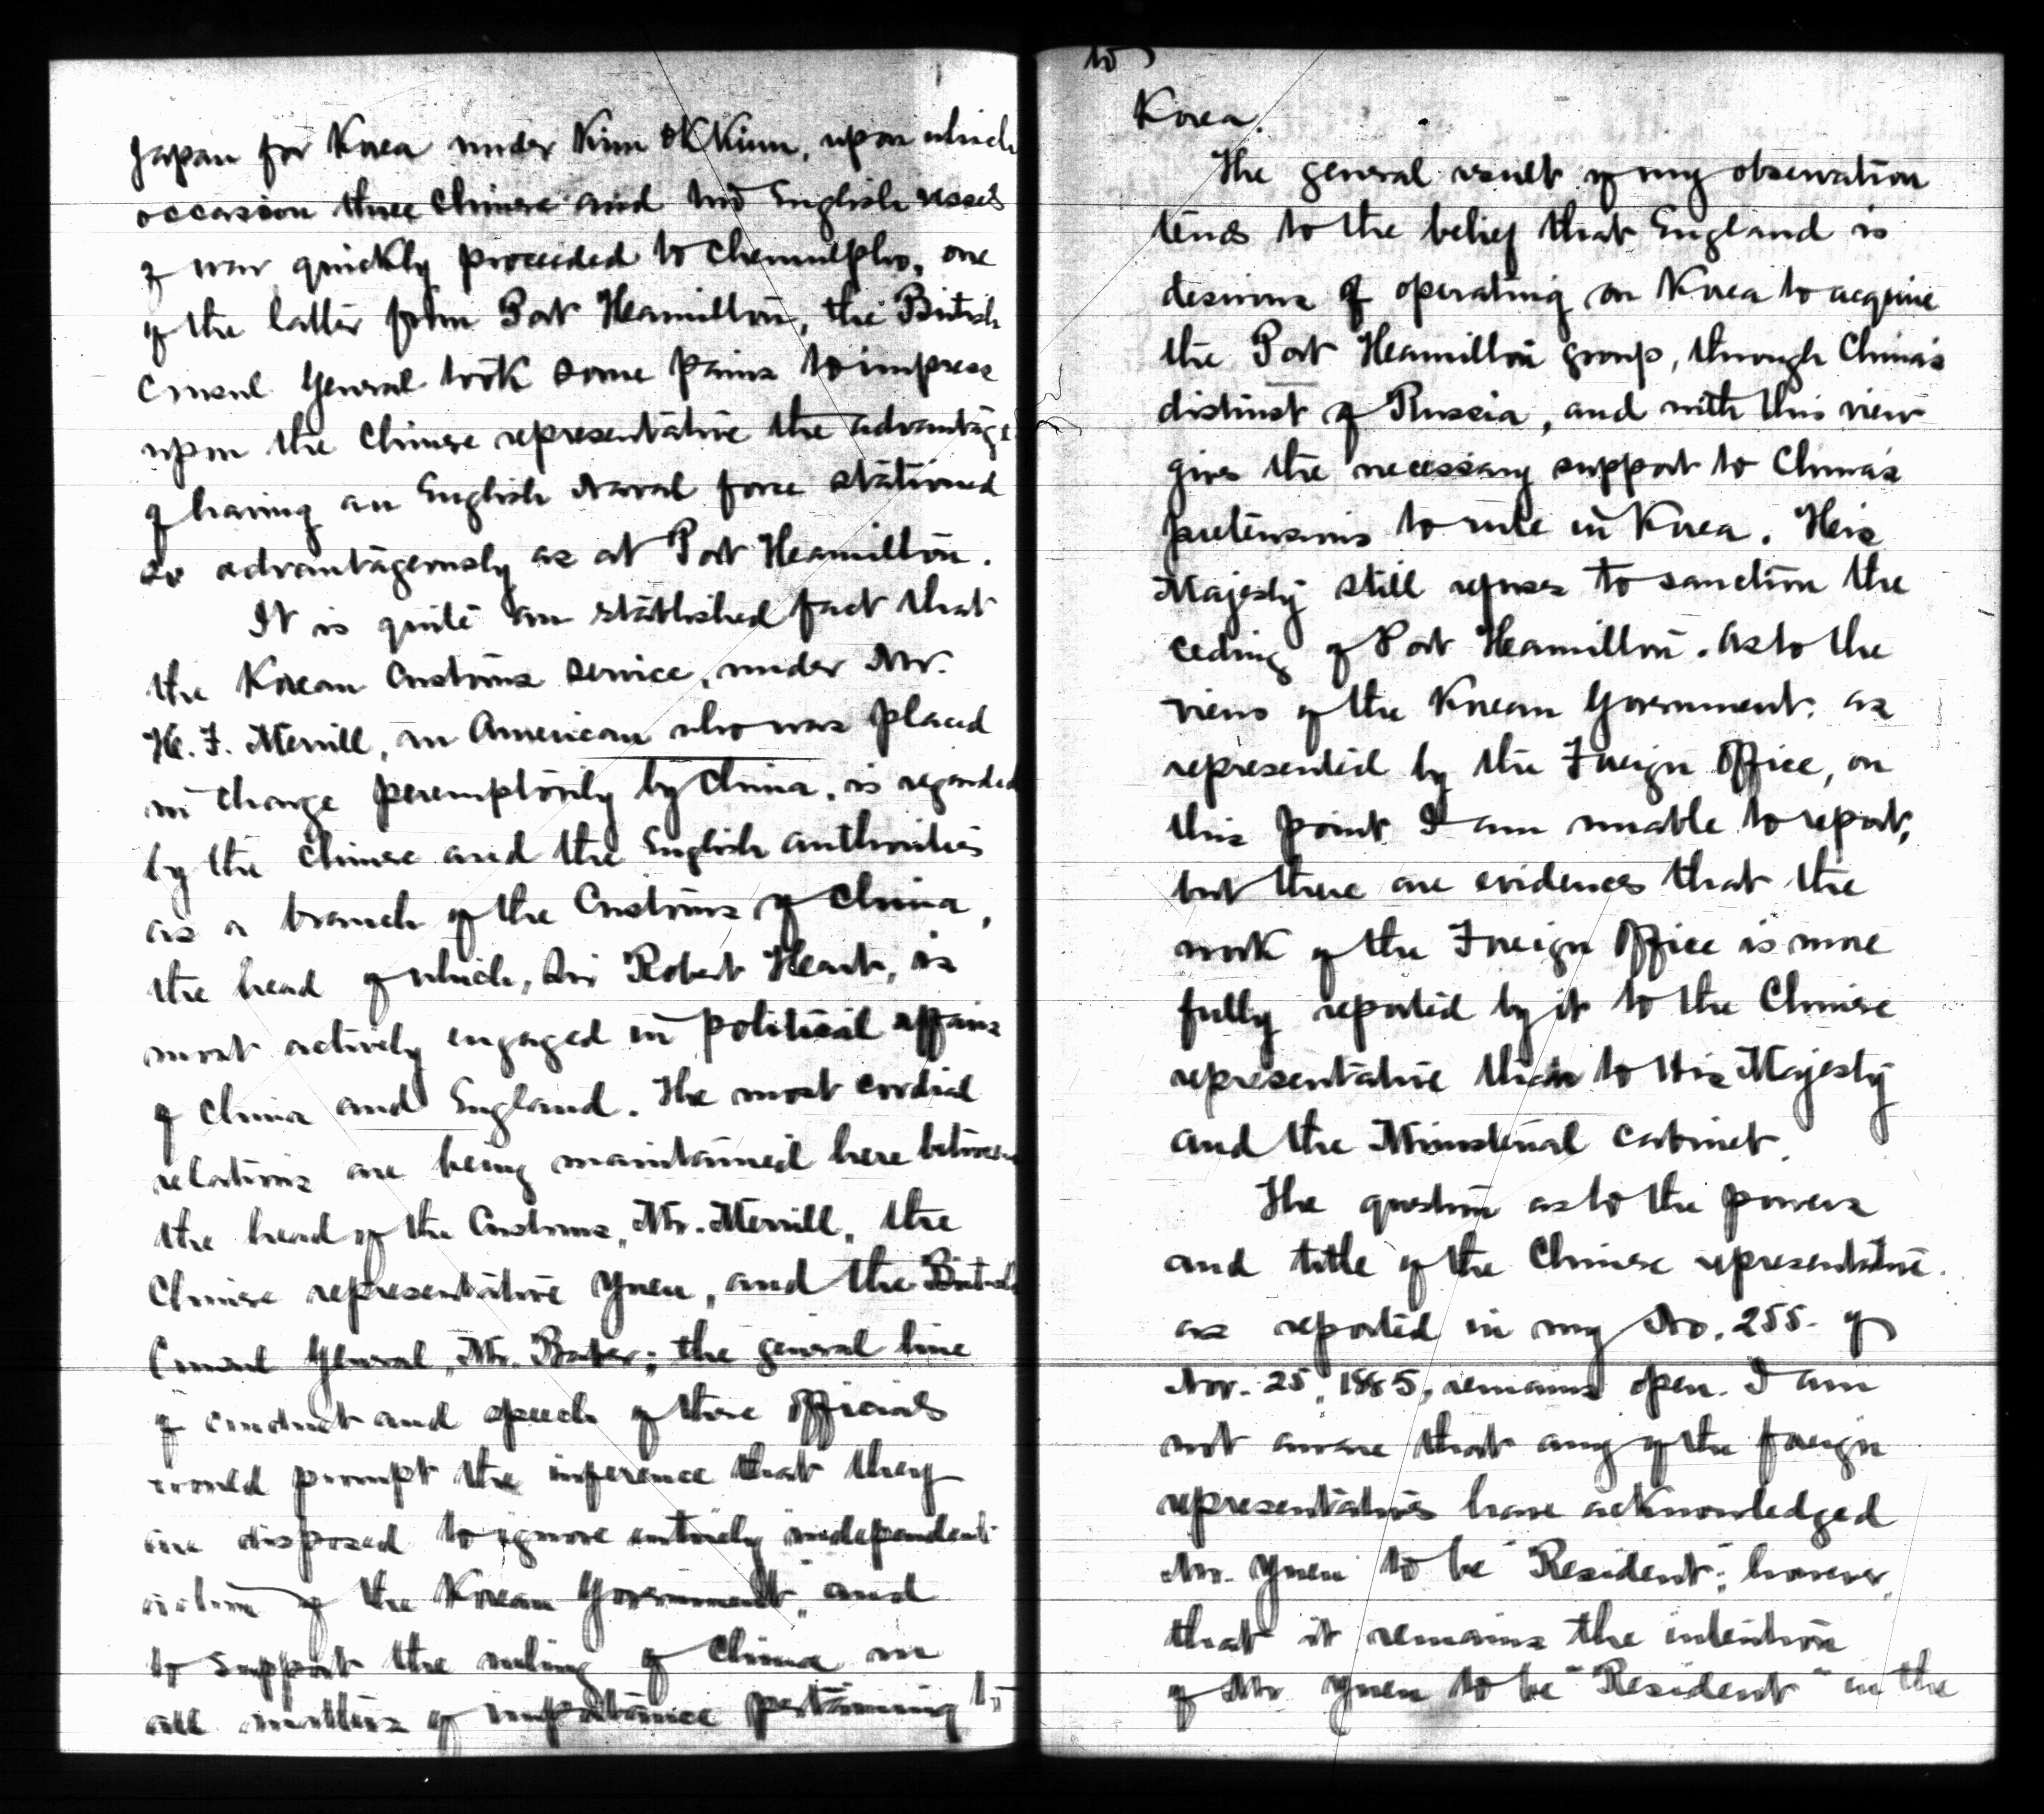 Japan for Korea under Kim OKKiun, upon which
occasion three Chinese and two English vessels
of war quickly proceeded to Chemulpho, one
of the latter from Port Hamilton, the British
Consul General took some pains to impress
upon the Chinese representative the advantage
of having an English Naval force stationed
so advantageously as at Port Hamilton.
It is quite an established fact that
the Korean Customs service, under Mr.
H. F. Merrill, an American who was placed
in charge peremptorily by China, is regarded
by the Chinese and the English authorities
as a branch of the Customs of China,
the head of which, Sir Robert Heart, is
most actively engaged in political affairs
of China and England. The most cordial
relations are being maintained here between
the head of the Customs, Mr. Merrill, the
Chinese representative Yuen, and the British
Consul General, Mr. Baber; the general line
of conduct and speech of these officials
would prompt the inference that they
are disposed to ignore entirely independent
action of the Korean Government, and
to support the ruling of China in
all matters of importance pertaining to
to
Korea.
The general result of my observation
tends to the belief that England is
desirous of operating on Korea to acquire
the Port Hamilton group, through China's
distrust of Russia, and with this view
gives the necessary support to China's
pretensions to rule in Korea. His
Majesty still refuses to sanction the
ceding of Port Hamilton. As to the
views of the Korean Government, as
represented by the Foreign Office, on
this point I am unable to report,
but there are evidences that the
work of the Foreign Office is more
fully reported by it to the Chinese
representative than to His Majesty
and the Ministerial cabinet.
The question as to the powers
and title of the Chinese representative.
as reported in my No. 255. of
Nov. 25, 1885, remains open. I am
not aware that any of the foreign
representatives have acknowledged
Mr. Yuen to be "Resident"; however,
that it remains the intention
of Mr Yuen to be "Resident" in the